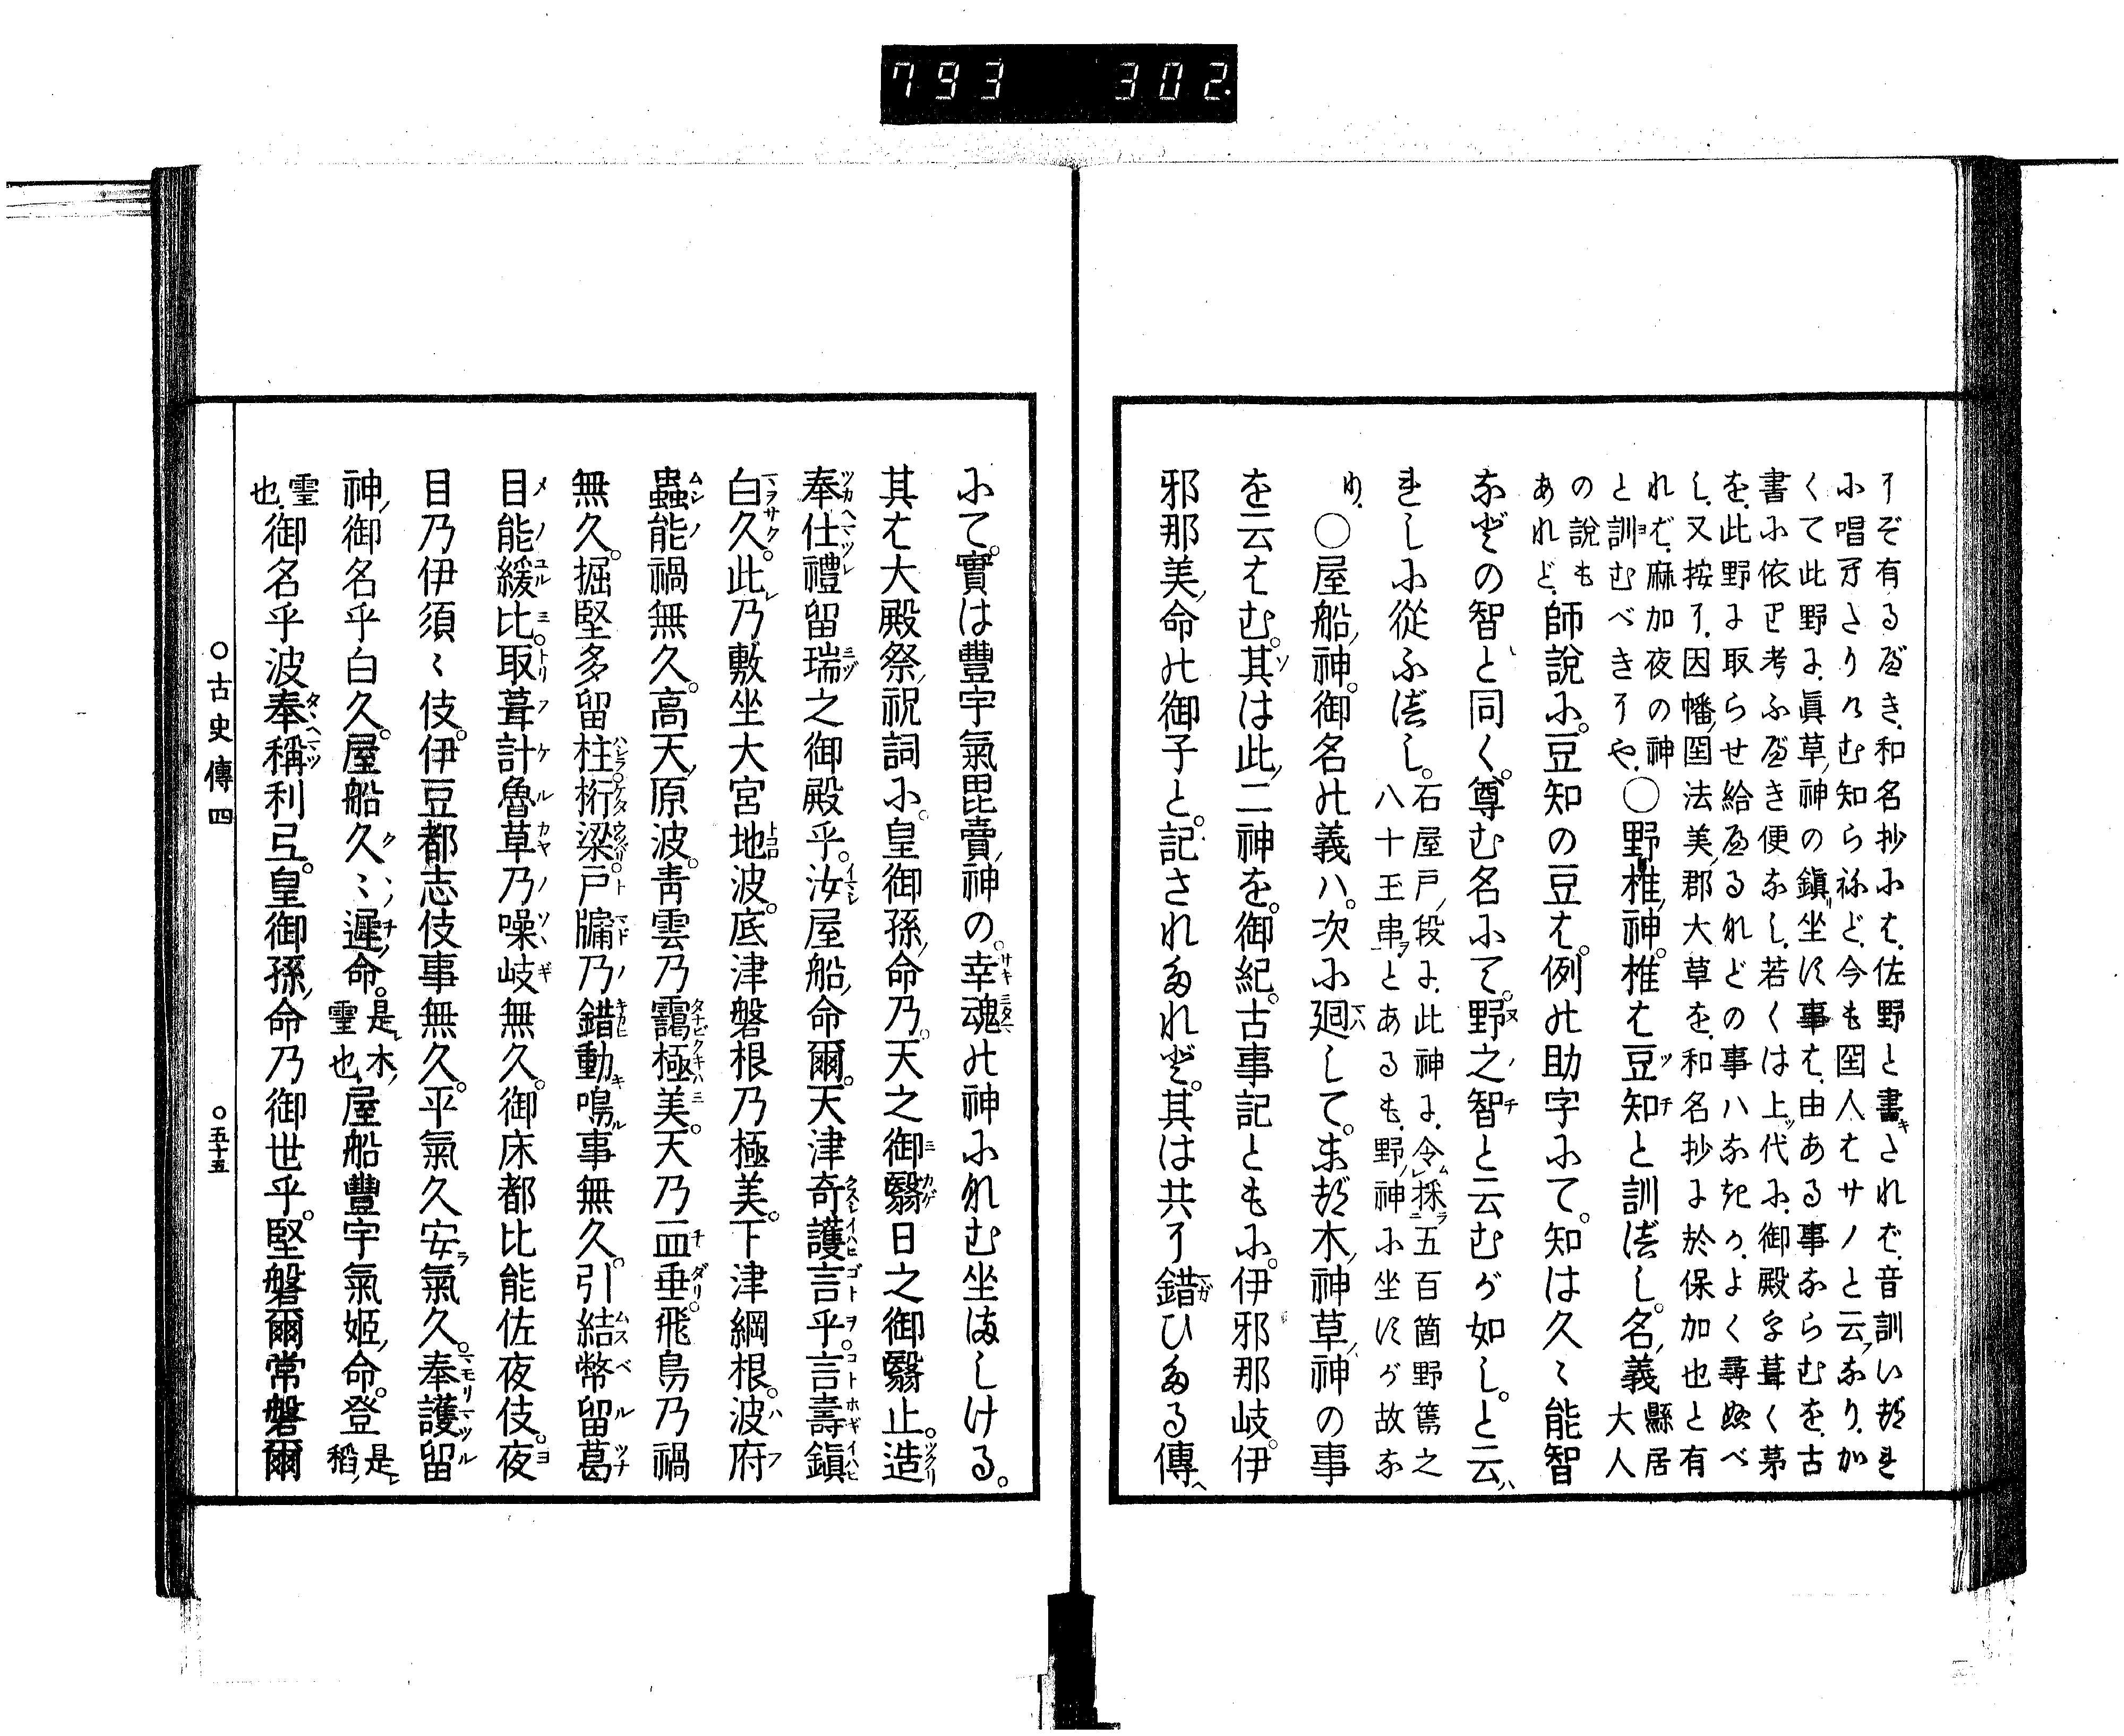 793 302.
りぞ有るべき、和名抄には、佐野と書されバ、音訓いづれ
に唱へたりけむ知らねど、今も国人はサノと云なり、か
くて此野に、眞草神の鎭坐す事は、由ある事ならむを、古
書に依て考ふべき便なし、若くは上代に、御殿を葺く茅
を、此野に取らせ給へるれどの事ハなきか、よく尋ぬべ
し、又按に、因幡国法美郡大草を、和名抄に於保加也と有
れバ、麻加夜の神
と訓むべきりや、○野椎神。椎は豆知と訓べし。名義 縣居大人
の說も
あれど、師說に。豆知の豆は。例の助字にて。知は久〻能智
などの智と同く。尊む名にて。野之智と云むが如し。と云
れしに從ふべし。石屋戸段に、此神に、令採五百箇野篶之
八十玉串とあるも、野神に坐すが故な
り、○屋船神。御名の義ハ。次に廻して。まづ木神草神の事
を云はむ。其は此二神を。御紀。古事記ともに。伊邪那岐。伊
邪那美命の御子と。記されたれど。其は共に錯ひたる傳
にて。實は豐宇氣毘賣神の。幸魂の神になむ坐ましける。
其は大殿祭祝詞に。皇御孫命乃。天之御翳日之御翳止。造
奉仕禮留瑞之御殿乎。汝屋船命爾。天津奇護言乎。言壽鎭
白久。此乃敷坐大宮地波。底津磐根乃極美。下津綱根。波府
蟲能禍無久。高天原波。靑雲乃靄極美。天乃血垂飛鳥乃禍
無久。掘堅多留柱桁梁戸牖乃錯動鳴事無久。引結幣留葛
目能緩比。取葺計魯草乃噪岐無久。御床都比能佐夜伎。夜
目乃伊須〻伎。伊豆都志伎事無久。平氣久安氣久。奉護留
神御名乎白久。屋船久〻遲命。是木靈也、屋船豐宇氣姬命。登 是稻
靈也、御名乎波奉稱利弖。皇御孫命乃御世乎。堅磐爾常磐爾
○古史傳四
○五十五